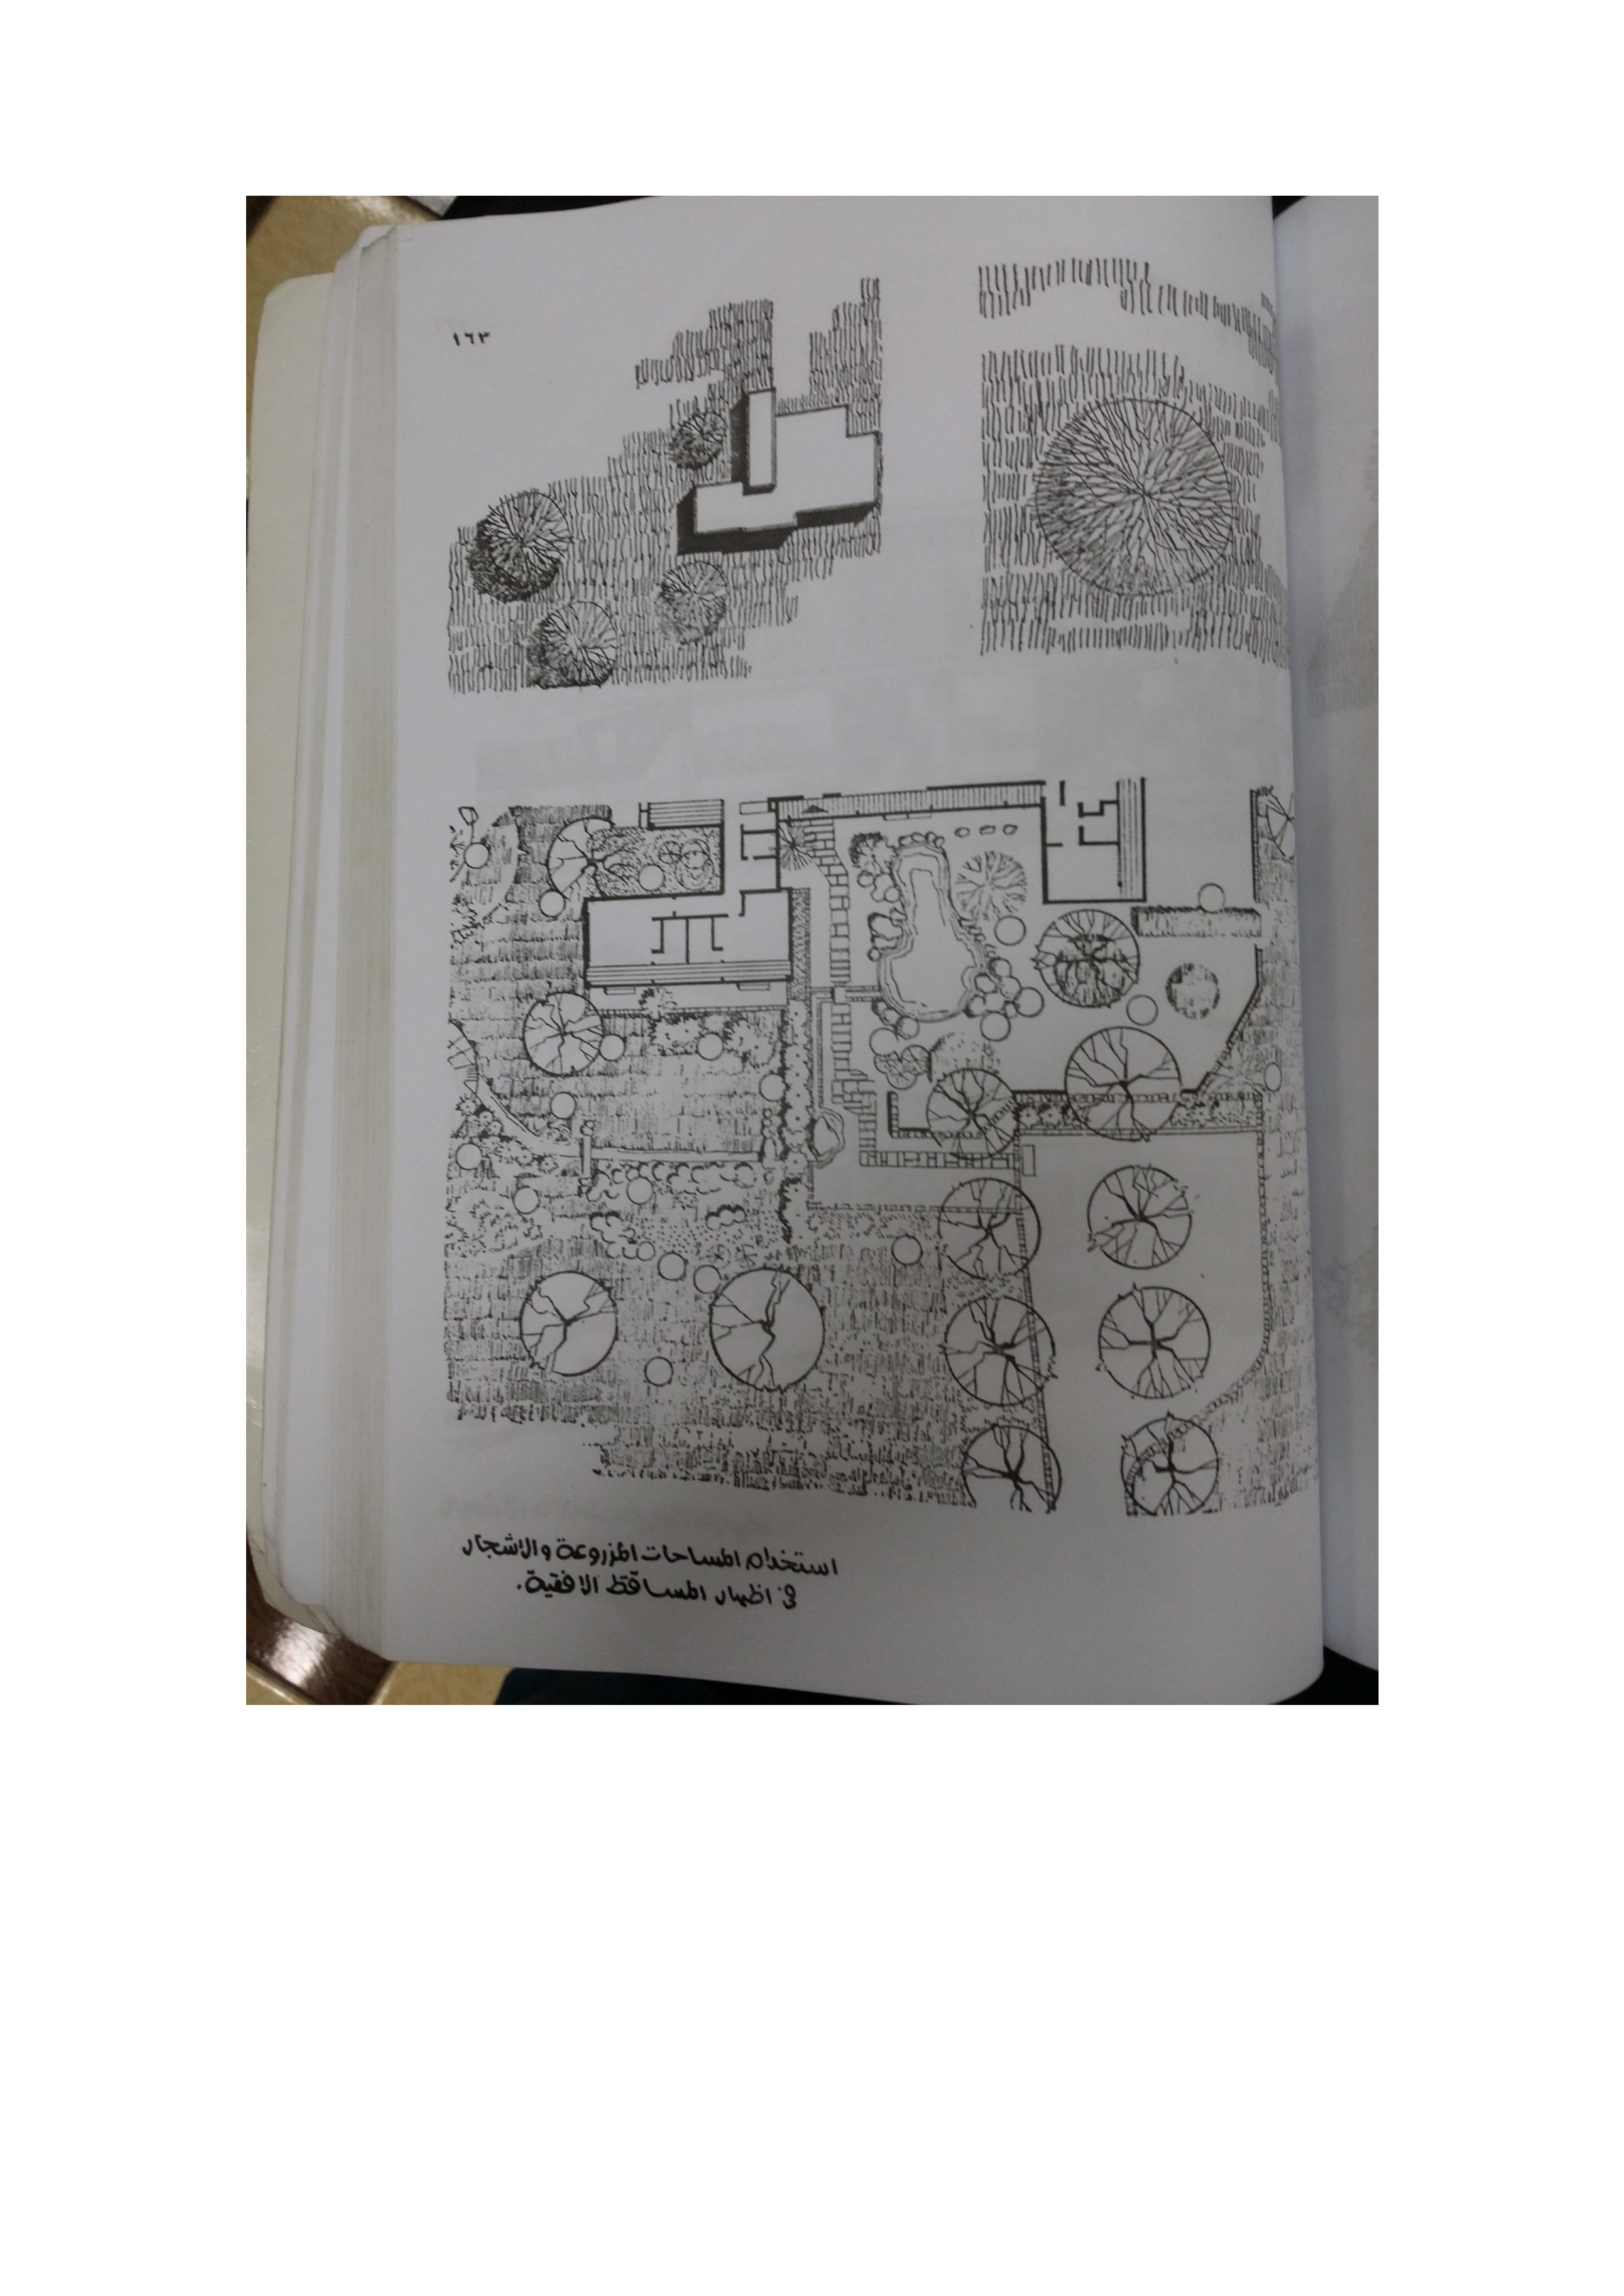 ١٦٣
استخدام المساحات المزروعة والاشجار
في اظهار المساقط الافقية.